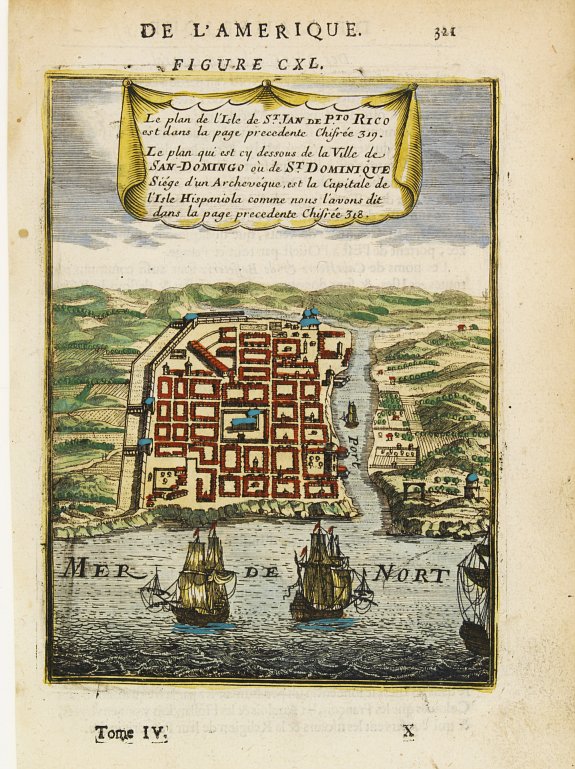 DE L'AMERIQUE. 321
FIGURE CXL.
Le plan de l'Isle de ST. IAN DE PTO RICO
est dans la page precedente Chifrée 319.
Le plan qui est cy dessous de la Ville de
SAN-DOMINGO ou de ST DOMINIQUE
Siége d'un Archevêque, est la Capitale de
l'Isle Hispaniola comme nous l'avons dit
dans la page precedente Chifrée 318.
Port
MER DE NORT
Tome IV. X